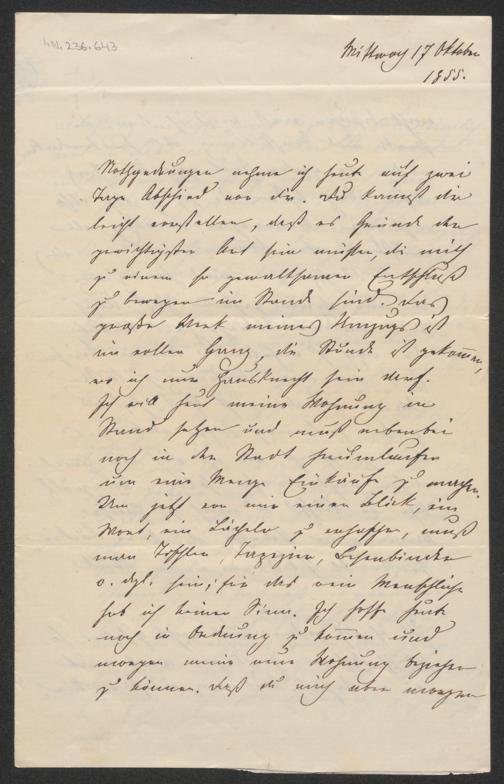 I.N. 236.643
Mittwoch 17 Oktober
1855.
Nothgedrungen nehme ich heute auf zwei
Tage Abschied von Dir. Du kannst dir
leicht vorstellen, daß es Gründe der
gewichtigsten Art sein müssen, die mich
zu einem so gewaltsamen Entschluß
zu bewegen im Stande sind. Das
große Werk meines Umzugs ist
im vollen Gang, die Stunde ist gekommen,
wo ich nur Hausknecht sein darf.
Ich will heut meine Wohnung in
Stand setzen und muß nebenbei
noch in der Stadt herumlaufen
um eine Menge Einkäufe zu machen.
Um jetzt von mir einen Blick, ein
Wort, ein Lächeln zu erhaschen, muß
man Tischler, Tapezier,
o. dgl. sein; für das rein Menschliche
hab ich keinen Sinn. Ich hoffe heute
noch in Ordnung zu kommen und
morgen meine neue Wohnung beziehen
zu können. Daß du mich aber morgen